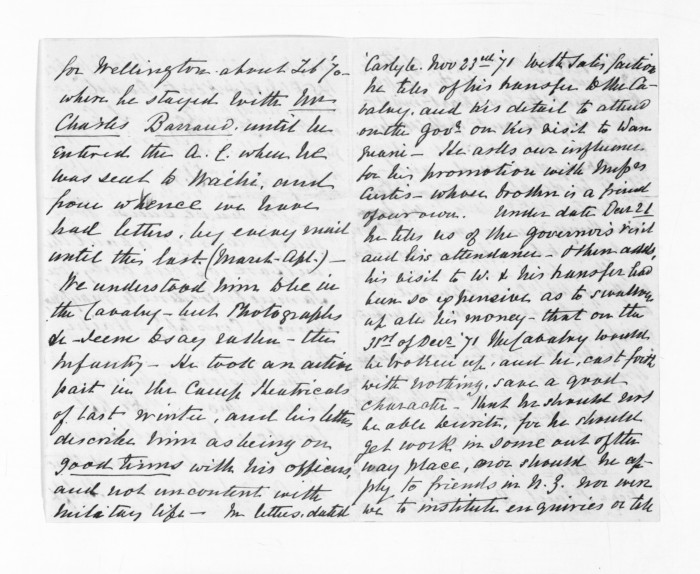 for Wellington about Feb 70
where he stayed with Mr
Charles Barraud. until he
entered the A. C. when he
was sent to Waihi, and
from whence we have
had letters, by every mail
until the last (March-Apl.) -
We understood him to be in
the Cavalry - but Photographs
&c - seem to say rather - the
Infantry - He took an active
part in the Camp theatricals
of last winter, and his letters
describe him as being on
good terms with his officers,
and not uncontent with
military life - In letters, dated
Carlyle. Nov 23rd 71 with satisfaction
he tells of his transfer to the Ca-
valry, and his detail to attend
on the Govr. on his visit to Wan
ganui - He asks our influence
for his promotion with Messrs
Curtis - whose brother is a friend
of our own. Under date Decr 21
he tells us of the governors visit
and his attendance - then adds,
his visit to W. & his transfer had
been so expensive as to swallow
up all his money - that on the
31st of Decr '71 the Cavalry would
be broken up, and he, cast forth
with nothing, save a good
character - that he should not
be able to write, for he should
get work in some out of the
way place, nor should he ap-
ply to friends in N. Z. nor were
we to institute enquiries or tell